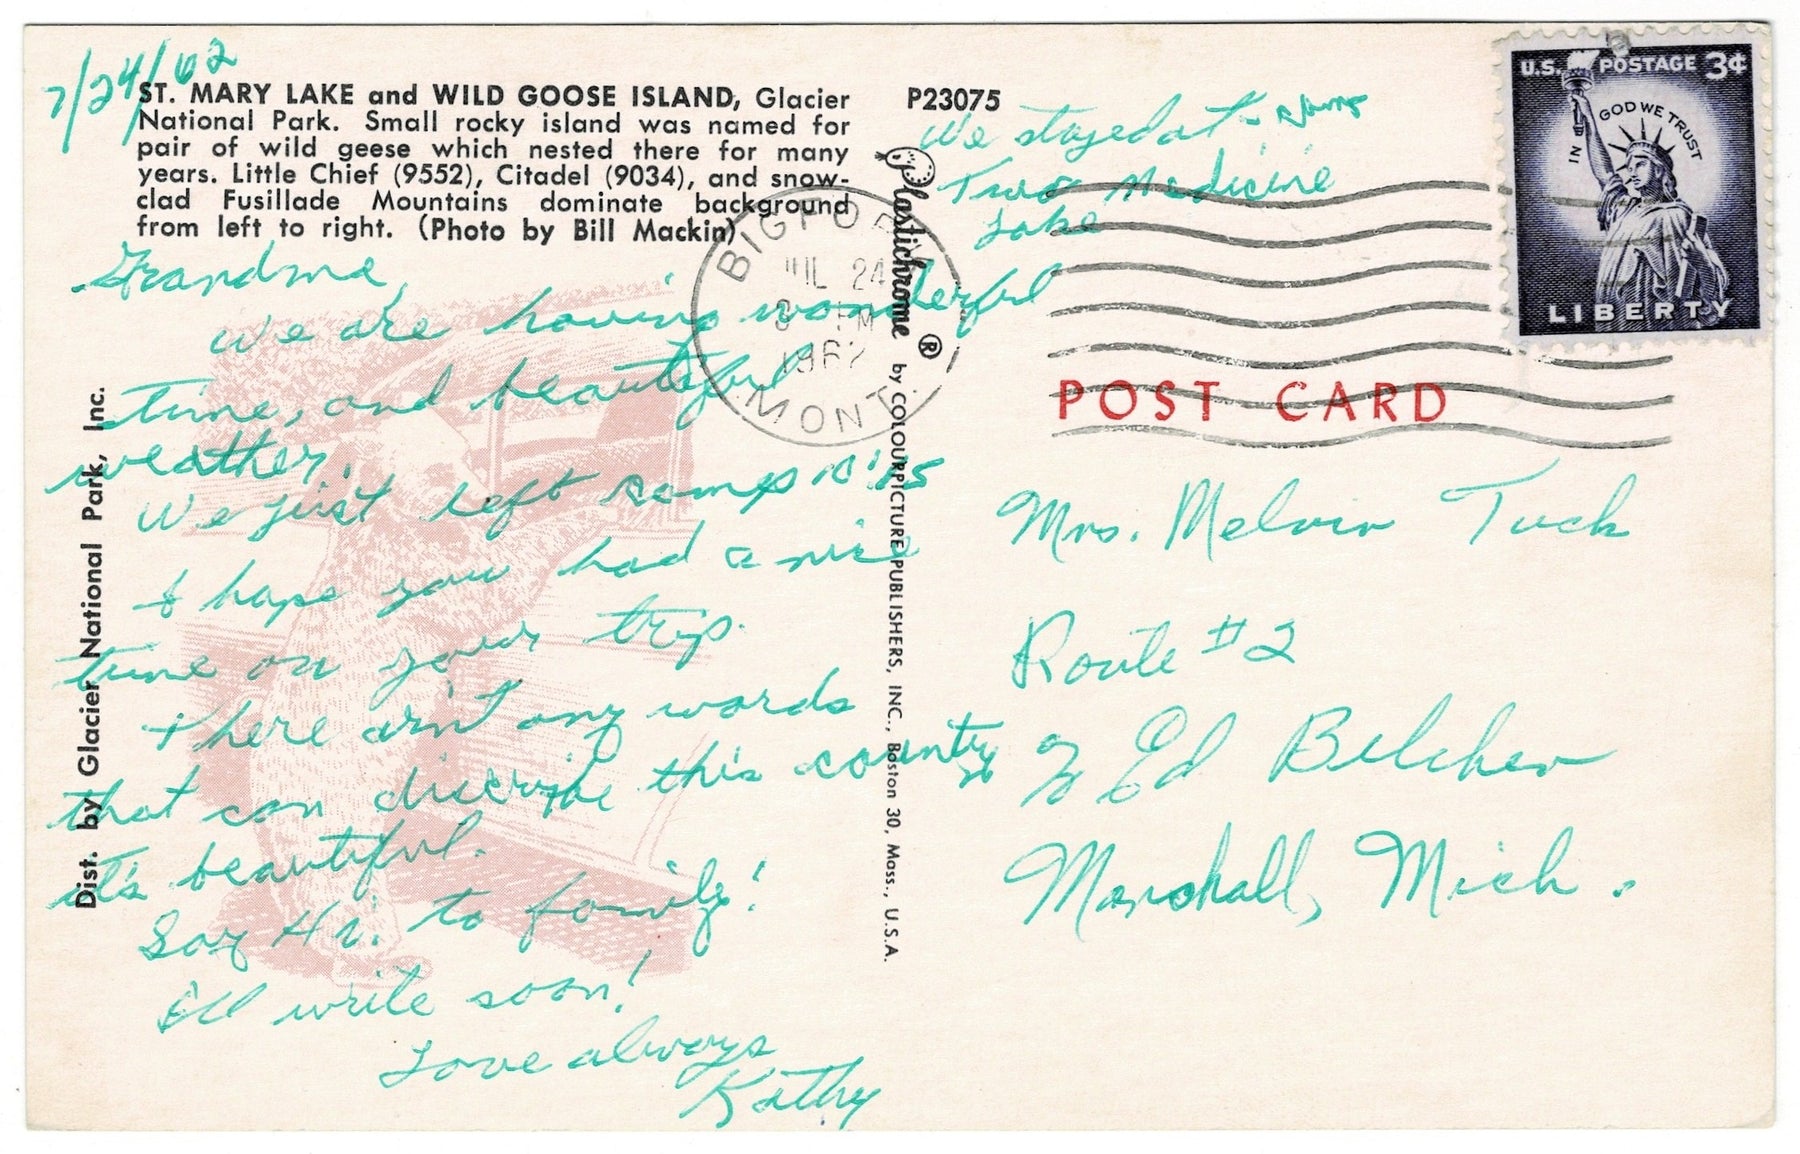 7/24/62
ST. MARY LAKE and WILD GOOSE ISLAND, Glacier
National Park. Small rocky island was named for
pair of wild geese which nested there for many
years. Little Chief (9552), Citadel (9034), and snow-
clad Fusillade Mountains dominate background
from left to right. (Photo by Bill Mackin)
Grandma,
We are having wonderful
time, and beautiful
weather.
We just left camp 10:15
I hope you had a nice
time on your trip.
there arn't any words
that can discribe this country
it's beautiful.
Say Hi. to family!
I'll write soon!
Love always
Kathy
Dist. by Glacier National Park, Inc.
P23075
Plastichrome ® by COLOURPICTURE PUBLISHERS, INC., Boston 30, Mass., U.S.A.
We stayed at
Two Medicine
Lake
BIGFORK
JUL 24
PM
1962
MONT.
U.S. POSTAGE 3¢
IN GOD WE TRUST
LIBERTY
POST CARD
Mrs. Melvin Tuck
Route #2
% Ed Belcher
Marshall, Mich.